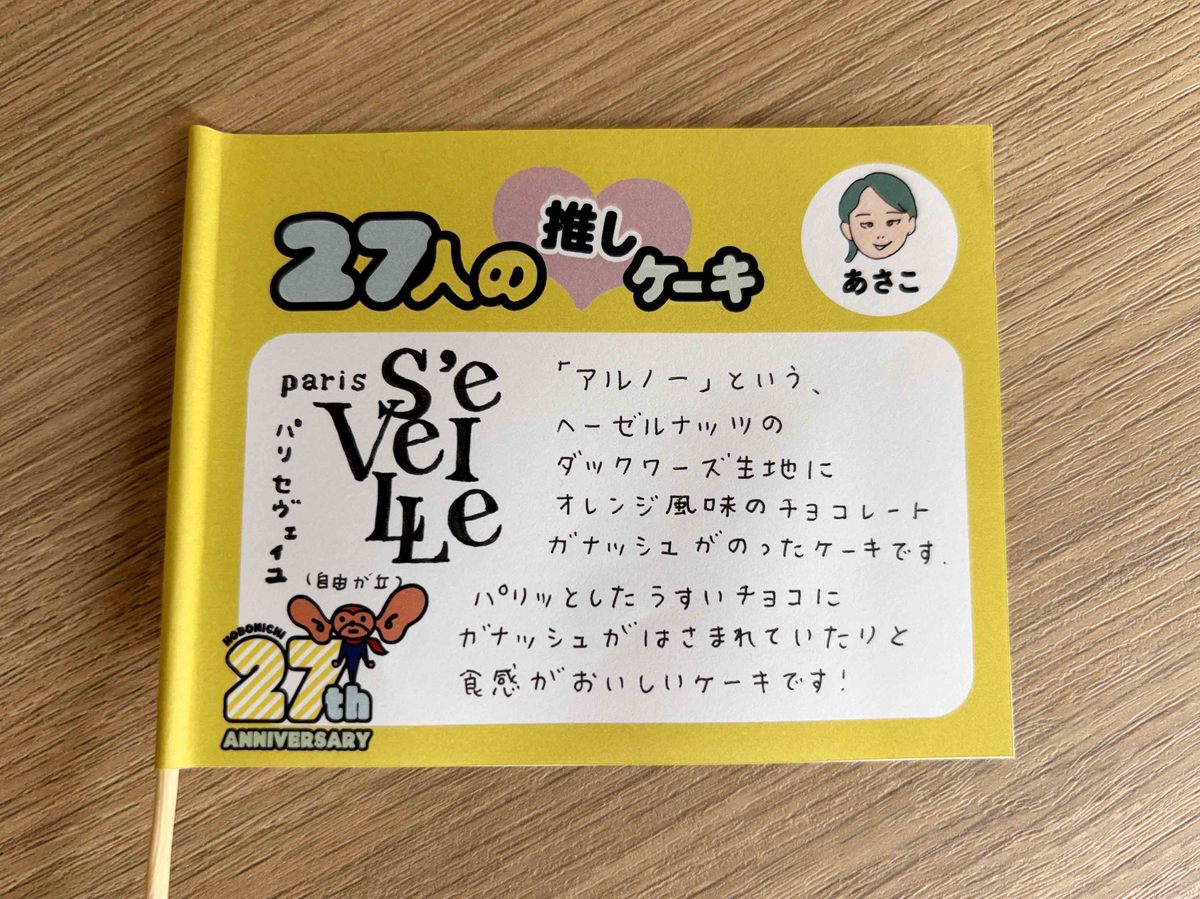 27人の推しケーキ
あさこ
paris S'eVeILLe
パリセヴェイユ
(自由が丘)
「アルノー」という、
ヘーゼルナッツの
ダックワーズ生地に
オレンジ風味のチョコレート
ガナッシュがのったケーキです.
パリッとしたうすいチョコに
ガナッシュがはさまれていたりと
食感がおいしいケーキです!
HOBONICHI
27th
ANNIVERSARY